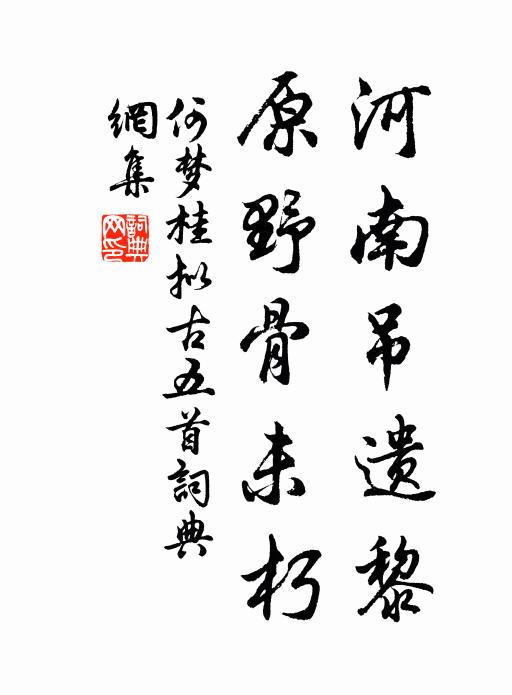 河南吊遗黎
原野骨未朽
何梦桂拟古五首詞典
網集
詞典網印